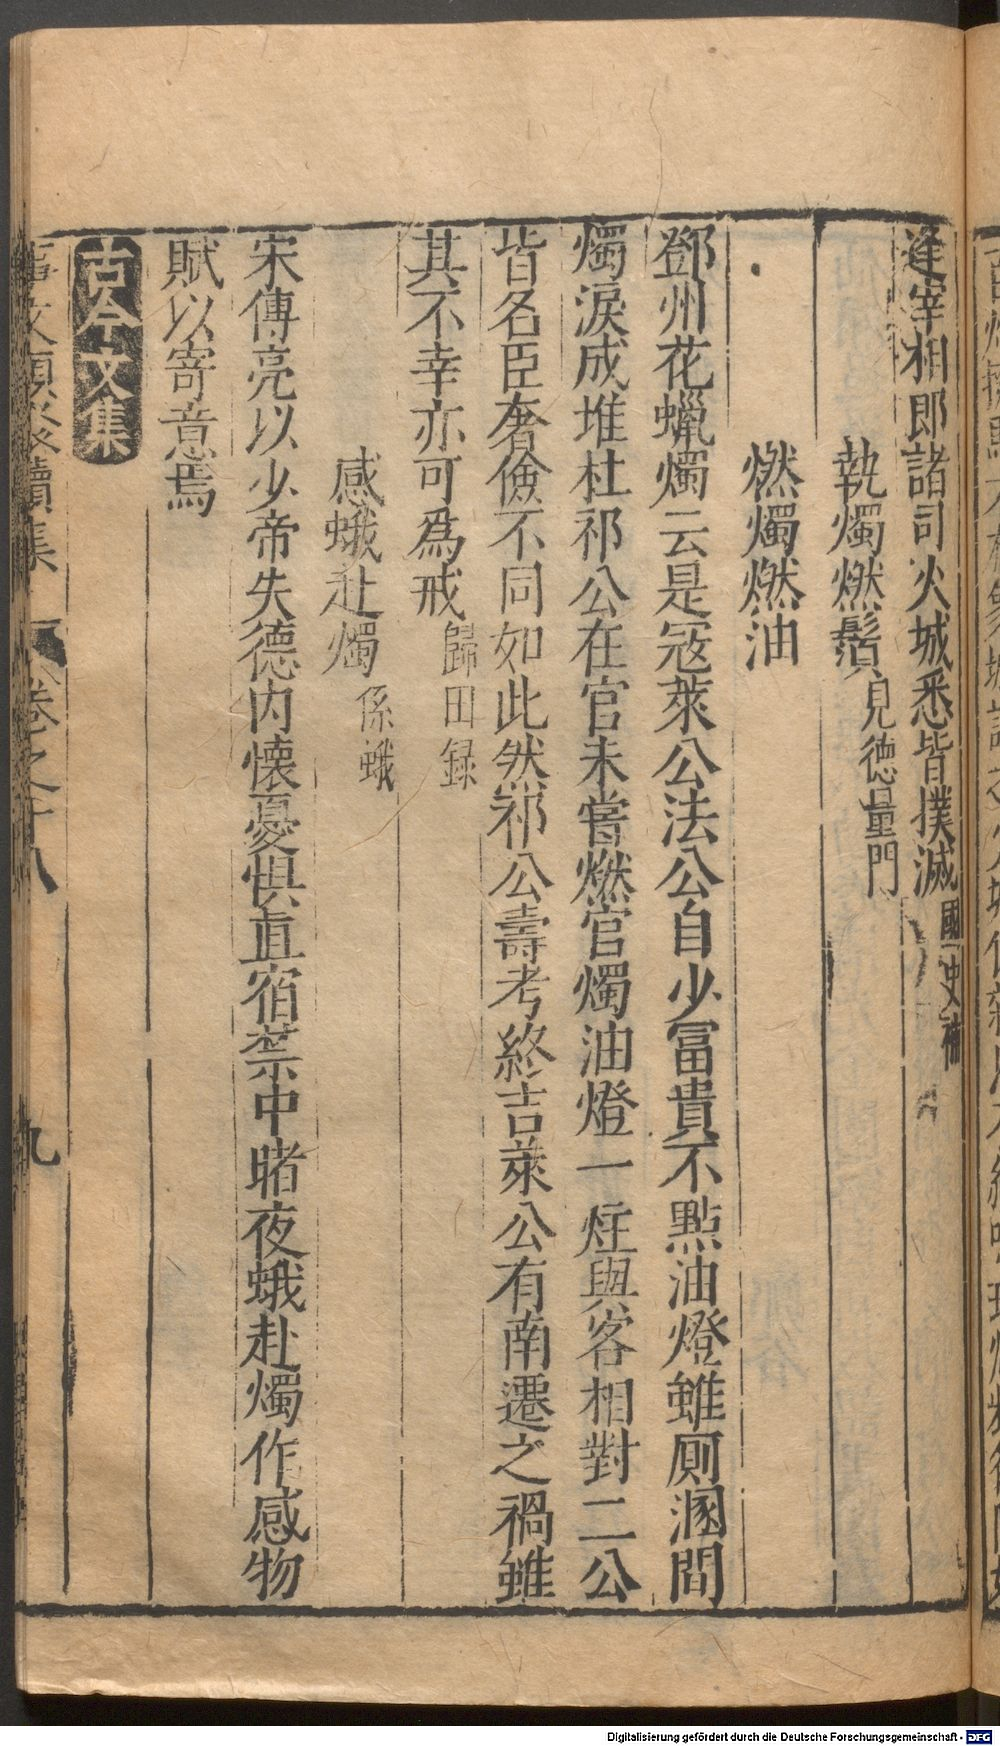 逢宰相即諸司火城悉皆撲滅國史補
執燭燃鬚見德量門
燃燭燃油
鄧州花蠟燭云是寇萊公法公自少冨貴不點油燈雖厠溷間
燭淚成堆杜祁公在官未嘗燃官燭油燈一炷與客相對二公
皆名臣奢儉不同如此然祁公壽考終吉萊公有南遷之禍雖
其不幸亦可爲戒歸田録
感蛾赴燭係蛾
宋傅亮以少帝失德内懐憂惧直宿禁中睹夜蛾赴燭作感物
賦以寄意焉
古今文集
事文類聚續集 卷之十八 九
Digitalisierung gefördert durch die Deutsche Forschungsgemeinschaft - DFG